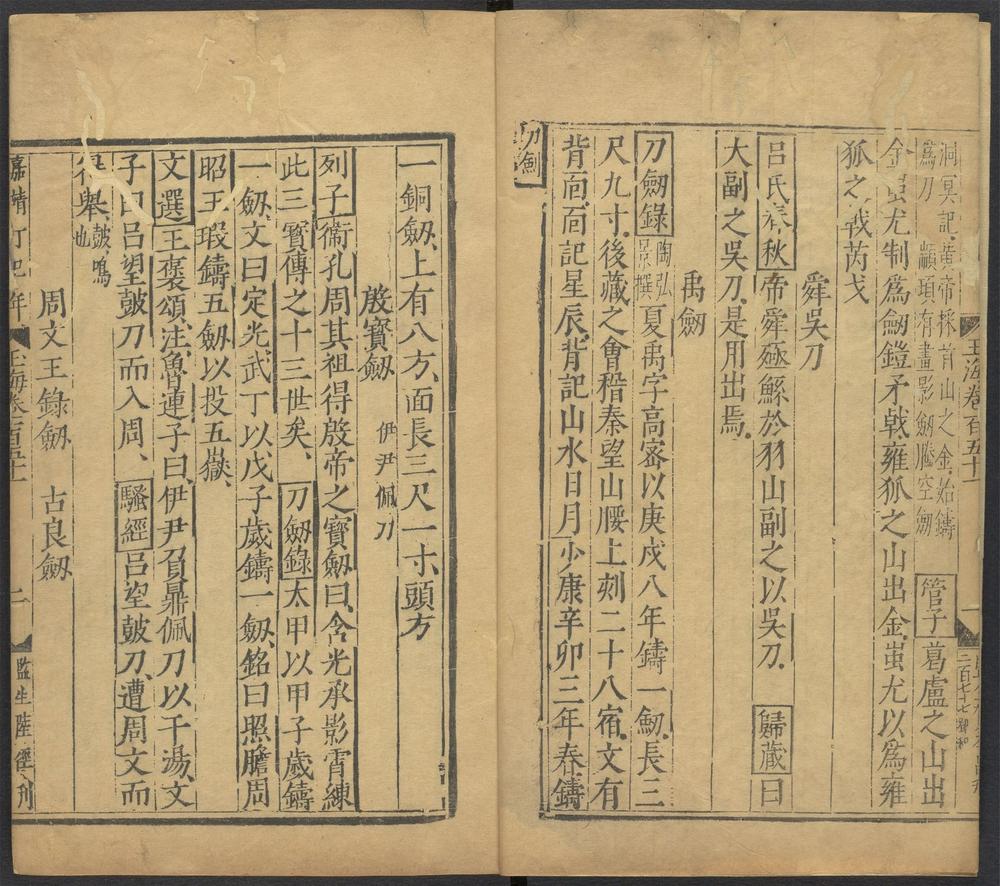 玉海卷百五十一
二百七十七
洞冥記黃帝採首山之金始鑄
爲刀 顓頊有畫影劒騰空劒
管子葛盧之山出
金蚩尤制爲劒鎧矛戟雍狐之山出金蚩尤以爲雍
狐之戟芮戈
舜吳刀
呂氏春秋帝舜殛鯀於羽山副之以吳刀 歸藏曰
大副之吳刀是用出焉
禹劒
刀劒錄陶弘景撰夏禹字高密以庚戌八年鑄一劒長三
尺九寸後藏之會稽秦望山腰上刻二十八宿文有
背面面記星辰背記山水日月少康辛卯三年春鑄
刀劒
一銅劒上有八方面長三尺一寸頭方
殷寶劒 伊尹佩刀
列子衞孔周其祖得殷帝之寶劒曰含光承影霄練
此三寶傳之十三世矣 刀劒錄太甲以甲子歲鑄
一劒文曰定光武丁以戊子歲鑄一劒銘曰照膽周
昭王瑕鑄五劒以投五嶽
文選王褒頌注魯連子曰伊尹負鼎佩刀以干湯文
子曰呂望鼓刀而入周 騷經呂望鼓刀遭周文而
得舉鼓鳴也
周文王錄劒 古良劒
嘉靖丁巳年 玉海卷百五十一 二 監生陸徑刋